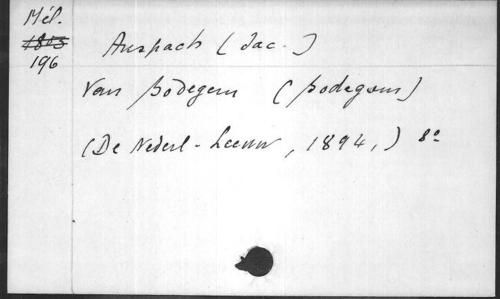 Mél.
1803
196
Anspach (Jac.)
Van Bodegem (Bodegom)
(De Nederl-Leeuw, 1894,) 8°